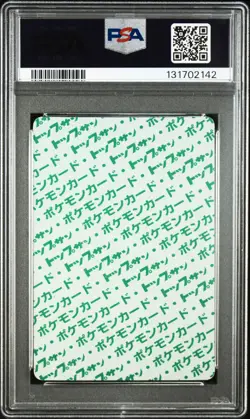 PSA
131702142
トップサン・ポケモンカード・トップサン
ポケモンカード・トップサン・ポケモンカード
トップサン・ポケモンカード・トップサン
ポケモンカード・トップサン・ポケモンカード
トップサン・ポケモンカード・トップサン
ポケモンカード・トップサン・ポケモンカード